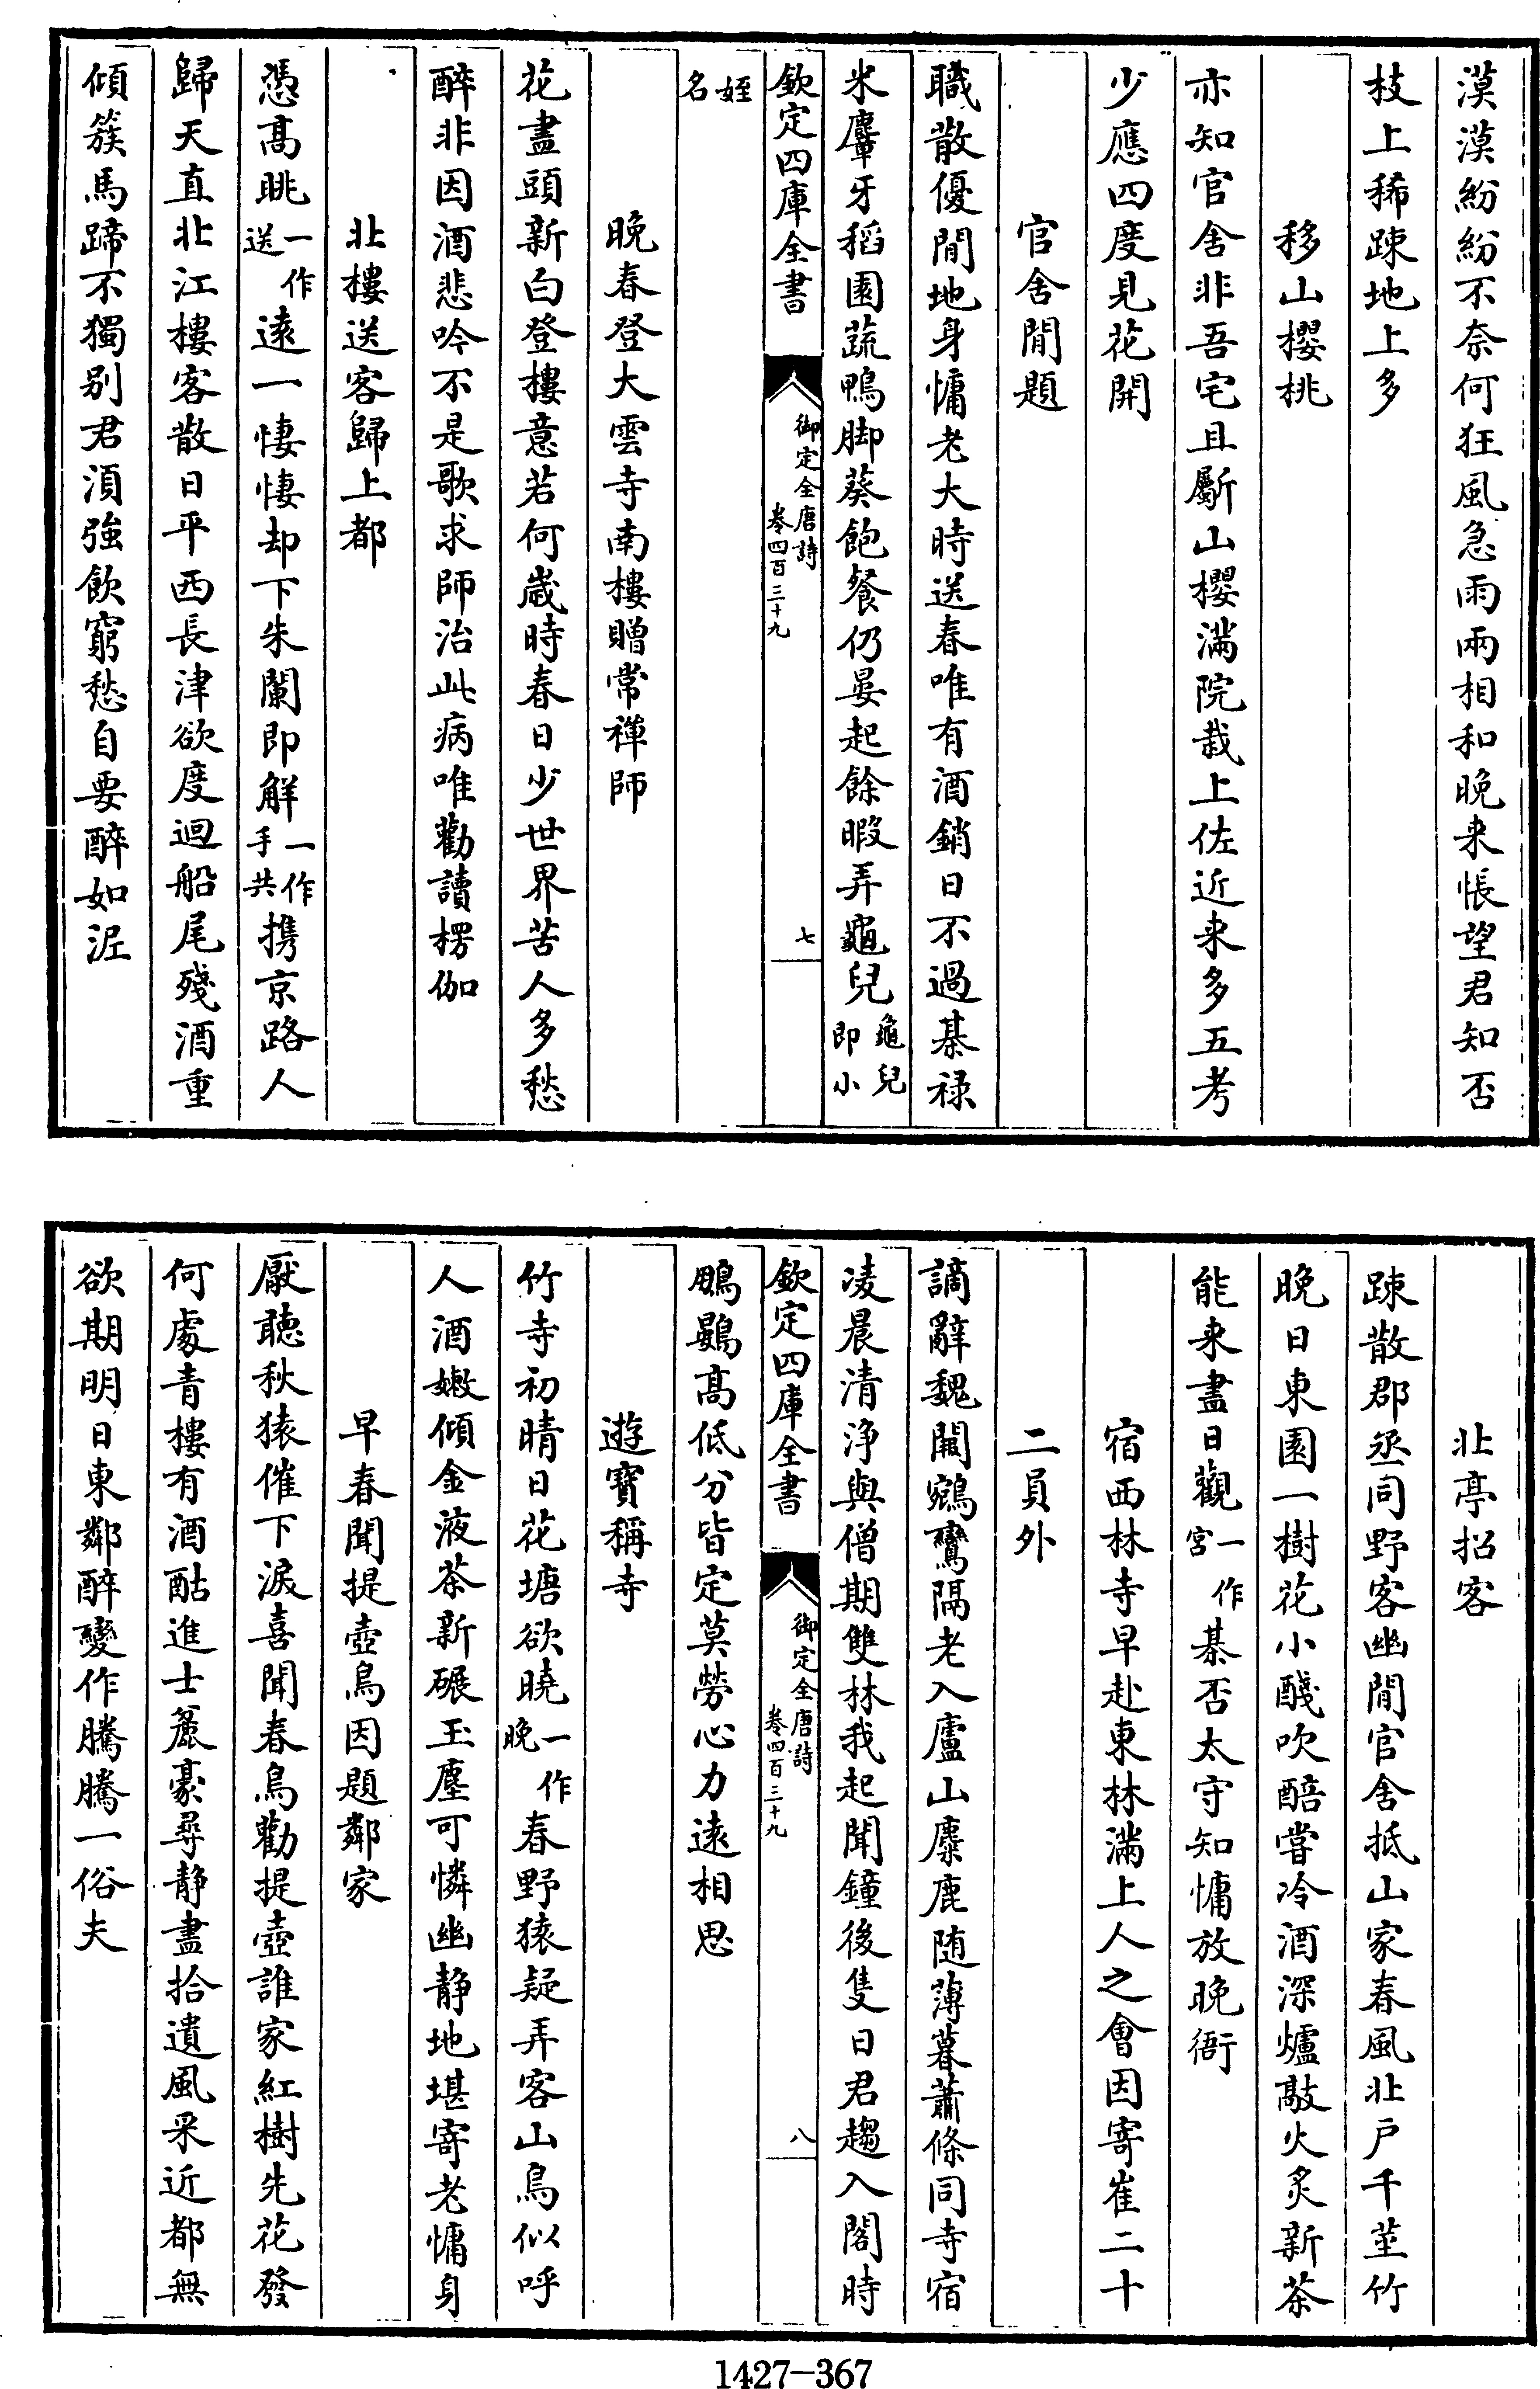 漠漠紛紛不奈何狂風急雨兩相和晚来悵望君知否
枝上稀踈地上多
移山櫻桃
亦知官舍非吾宅且斸山櫻滿院栽上佐近来多五考
少應四度見花開
官舍閒題
職散優閒地身慵老大時送春唯有酒銷日不過棊祿
米麞牙稻園蔬鴨脚葵飽餐仍晏起餘暇弄龜兒龜兒即小
欽定四庫全書
御定全唐詩
卷四百三十九
七
姪名
晚春登大雲寺南樓贈常禪師
花盡頭新白登樓意若何歲時春日少世界苦人多愁
醉非因酒悲吟不是歌求師治此病唯勸讀楞伽
北樓送客歸上都
憑高眺一作送遠一悽悽却下朱闌即解一作手共携京路人
歸天直北江樓客散日平西長津欲度迴船尾殘酒重
傾簇馬蹄不獨别君湏強飲窮愁自要醉如泥
北亭招客
踈散郡丞同野客幽閒官舍抵山家春風北戸千莖竹
晚日東園一樹花小醆吹醅嘗冷酒深爐敲火炙新茶
能来盡日觀一作宮棊否太守知慵放晚衙
宿西林寺早赴東林滿上人之會因寄崔二十
二員外
謫辭魏闕鵷鸞隔老入廬山麋鹿随薄暮蕭條同寺宿
凌晨清淨與僧期雙林我起聞鐘後隻日君趨入閣時
欽定四庫全書
御定全唐詩
卷四百三十九
八
鵬鷃高低分皆定莫勞心力遠相思
遊寳稱寺
竹寺初晴日花塘欲曉一作晚春野猿疑弄客山鳥似呼
人酒嫩傾金液茶新碾玉塵可憐幽静地堪寄老慵身
早春聞提壺鳥因題鄰家
厭聽秋猿催下淚喜聞春鳥勸提壺誰家紅樹先花發
何處青樓有酒酤進士麄豪尋静盡拾遺風采近都無
欲期明日東鄰醉變作騰騰一俗夫
1427-367